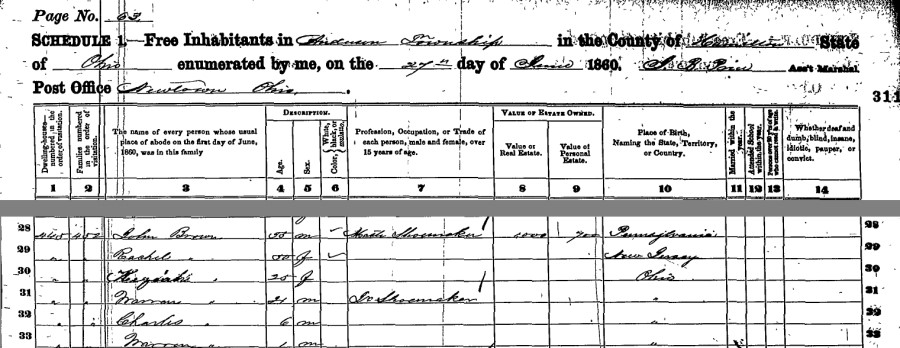 Page No. 63
SCHEDULE 1.—Free Inhabitants in Anderson Township in the County of Hamilton State
of Ohio enumerated by me, on the 27th day of June 1860. Ass't Marshal.
Post Office Newtown Ohio.
311
Dwelling-houses—numbered in the order of visitation.
Families numbered in the order of visitation.
The name of every person whose usual place of abode on the first day of June, 1860, was in this family
DESCRIPTION.
Age.
Sex.
Color, White, black, or mulatto.
Profession, Occupation, or Trade of each person, male and female, over 15 years of age.
VALUE OF ESTATE OWNED.
Value of Real Estate.
Value of Personal Estate.
Place of Birth, Naming the State, Territory, or Country.
Married within the year.
Attended School within the year.
Persons over 20 y'rs of age who cannot read & write.
Whether deaf and dumb, blind, insane, idiotic, pauper, or convict.
1 2 3 4 5 6 7 8 9 10 11 12 13 14
28 445 452 John Brown 55 m Mast Shoemaker 1000 700 Pennsylvania 28
29 " " Rachel " 50 f New Jersey 29
30 " " Keziah " 25 f Ohio 30
31 " " Warren " 21 m Do Shoemaker " 31
32 " Charles " 6 m " 32
33 " Warren " 1 m 33